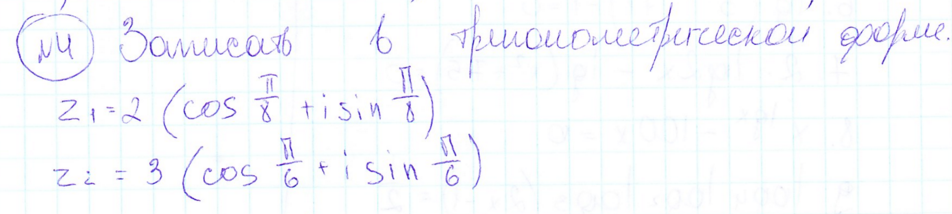 №4 Записать в тригонометрической форме.
z₁ = 2 (cos π/8 + i sin π/8)
z₂ = 3 (cos π/6 + i sin π/6)